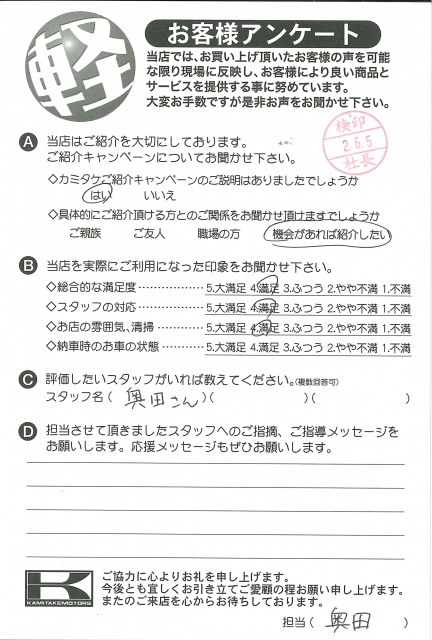 軽
お客様アンケート
当店では、お買い上げ頂いたお客様の声を可能
な限り現場に反映し、お客様により良い商品と
サービスを提供する事に努めています。
大変お手数ですが是非お声をお聞かせ下さい。
検印
26.5
社長
A 当店はご紹介を大切にしております。
ご紹介キャンペーンについてお聞かせ下さい。
◇カミタケご紹介キャンペーンのご説明はありましたでしょうか
はい いいえ
◇具体的にご紹介頂ける方とのご関係をお聞かせ頂けますでしょうか
ご親族 ご友人 職場の方 機会があれば紹介したい
B 当店を実際にご利用になった印象をお聞かせ下さい。
◇総合的な満足度……………5.大満足 4.満足 3.ふつう 2.やや不満 1.不満
◇スタッフの対応……………5.大満足 4.満足 3.ふつう 2.やや不満 1.不満
◇お店の雰囲気、清掃…………5.大満足 4.満足 3.ふつう 2.やや不満 1.不満
◇納車時のお車の状態…………5.大満足 4.満足 3.ふつう 2.やや不満 1.不満
C 評価したいスタッフがいれば教えてください。(複数回答可)
スタッフ名(奥田さん)( )( )
D 担当させて頂きましたスタッフへのご指摘、ご指導メッセージを
お願いします。応援メッセージもぜひお願いします。
K
KAMITAKEMOTORS
ご協力に心よりお礼を申し上げます。
今後とも宜しくお引き立てご愛顧の程お願い申し上げます。
またのご来店を心からお待ちしております。
担当(奥田)